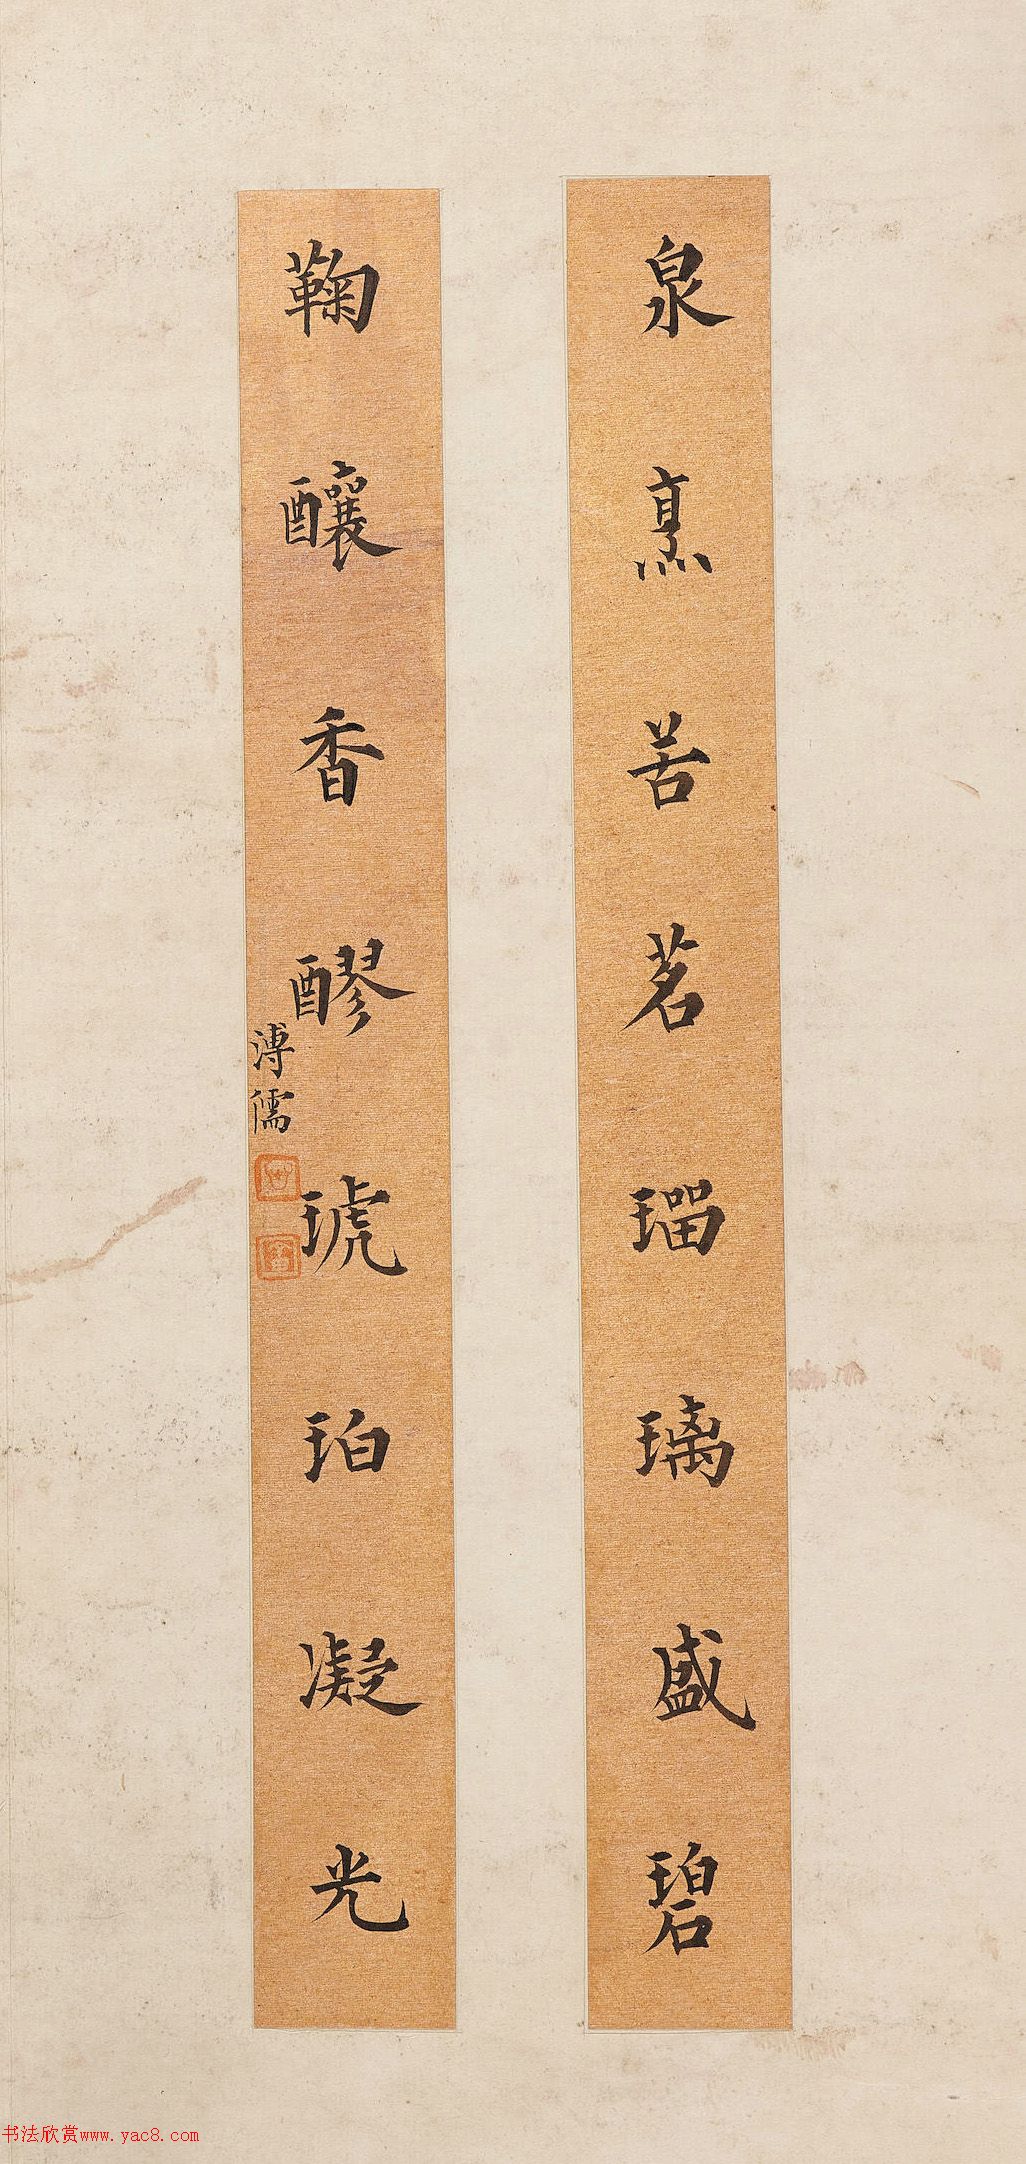 泉烹苦茗瑠璃盛碧
鞠釀香醪琥珀凝光
溥儒
书法欣赏www.yac8.com